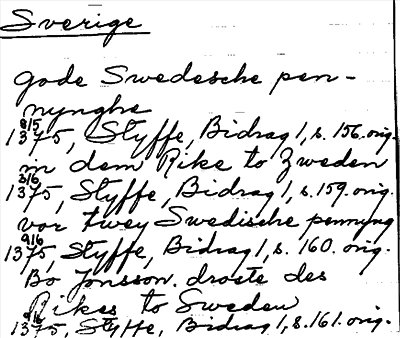 Sverige
gode Swedesche pen-
nynghe
8/5
1375, Styffe, Bidrag 1, s. 156. orig.
in dem Rike to Zweden
3/6
1375, Styffe, Bidrag 1, s. 159. orig.
vor twey Swedische pennyng
9/6
1375, Styffe, Bidrag 1, s. 160. orig.
Bo Jonsson. droste des
Rikes to Sweden
1375, Styffe, Bidrag 1, s. 161. orig.